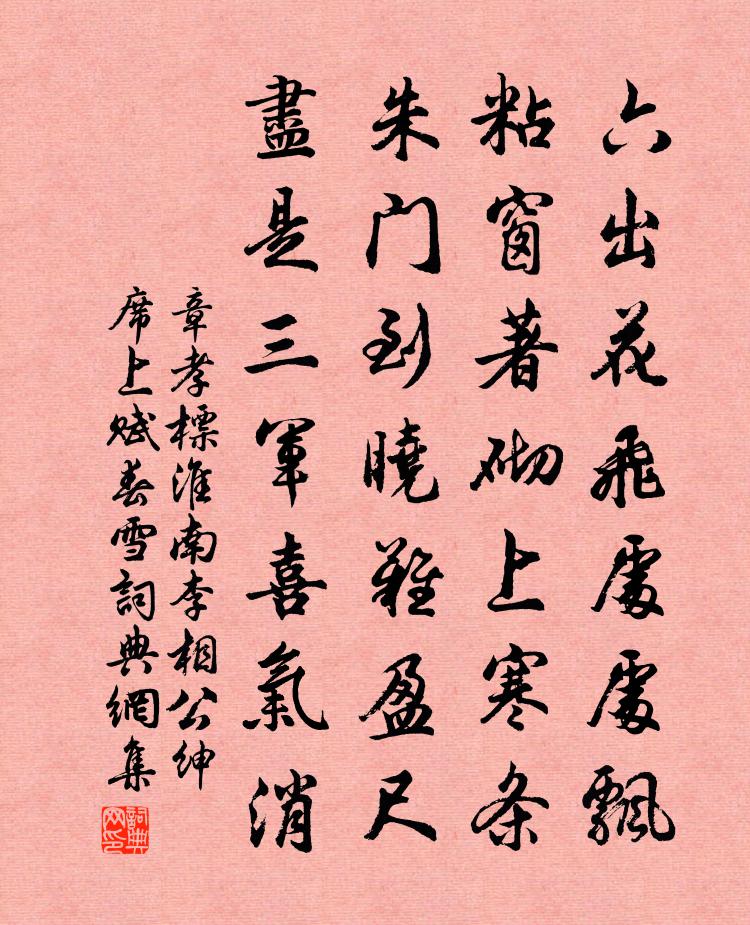 六出花飛處處飄
粘窗著砌上寒条
朱门到曉難盈尺
盡是三軍喜氣消
章孝標淮南李相公绅
席上赋春雪詞典網集
詞典
网印